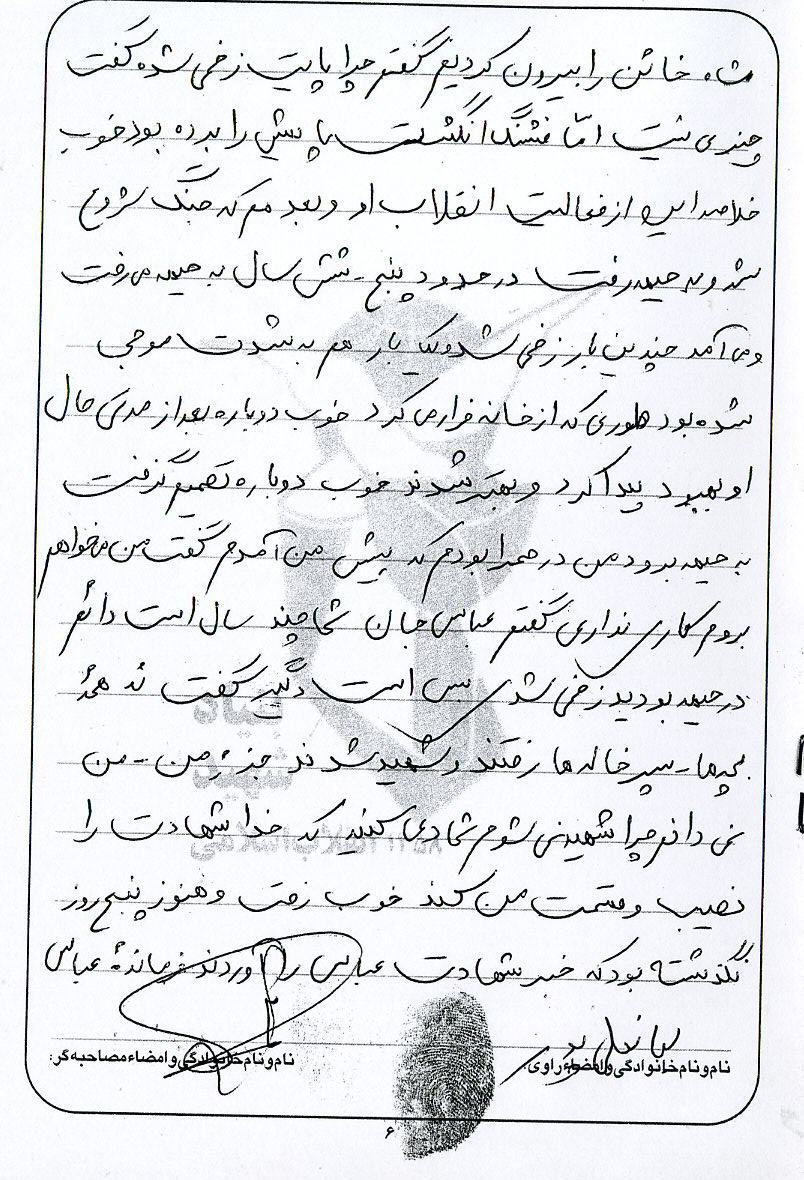 شاه خائن را بیرون کردیم گفتم چرا پایت زخمی شده گفت
چیزی نیست امّا فشنگ انگشت پایش را برده بود خوب
خلاصه این از فعالیت انقلاب او و بعد هم که جنگ شروع
شد و به جبهه رفت در حدود پنج - شش سال به جبهه می رفت
و می آمد چندین بار زخمی شد و یک بار هم به شدت موجی
شده بود طوری که از خانه فرار می کرد خوب دوباره بعد از مدتی حال
او بهبود پیدا کرد و بهتر شدند خوب دوباره تصمیم گرفت
به جبهه برود من در صحرا بودم که پیش من آمدم گفت من می خواهم
بروم کاری نداری گفتم عباس جان شما چند سال است دائم
در جبهه بودید زخمی شدی بس است دیگر گفت نه همهٔ
بچه ها - پسر خاله ها رفتند و شهید شدند جزء من - من
نمی دانم چرا شهید نمی شوم شما دعا کنید که خدا شهادت را
نصیب و قسمت من کند خوب رفت و هنوز پنج روز
نگذشته بود که خبر شهادت عباس را آوردند فرماندهٔ عباس
نام و نام خانوادگی و امضاء راوی:
نام و نام خانوادگی و امضاء مصاحبه گر:
۶